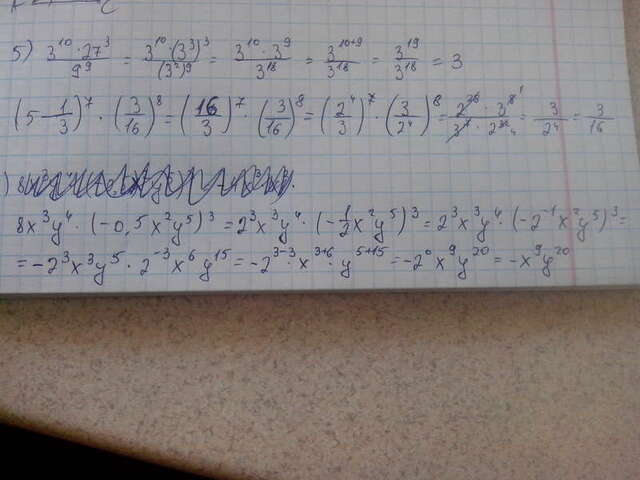 5) \frac{3^{10} \cdot 27^3}{9^9} = \frac{3^{10} \cdot (3^3)^3}{(3^2)^9} = \frac{3^{10} \cdot 3^9}{3^{18}} = \frac{3^{10+9}}{3^{18}} = \frac{3^{19}}{3^{18}} = 3
(5 \frac{1}{3})^7 \cdot (\frac{3}{16})^8 = (\frac{16}{3})^7 \cdot (\frac{3}{16})^8 = (\frac{2^4}{3})^7 \cdot (\frac{3}{2^4})^8 = \frac{2^{28} \cdot 3^8}{3^7 \cdot 2^{32}} = \frac{3}{2^4} = \frac{3}{16}
)
8x^3y^4 \cdot (-0,5x^2y^5)^3 = 2^3x^3y^4 \cdot (-\frac{1}{2}x^2y^5)^3 = 2^3x^3y^4 \cdot (-2^{-1}x^2y^5)^3 =
= -2^3x^3y^5 \cdot 2^{-3}x^6y^{15} = -2^{3-3} \cdot x^{3+6} \cdot y^{5+15} = -2^0x^9y^{20} = -x^9y^{20}